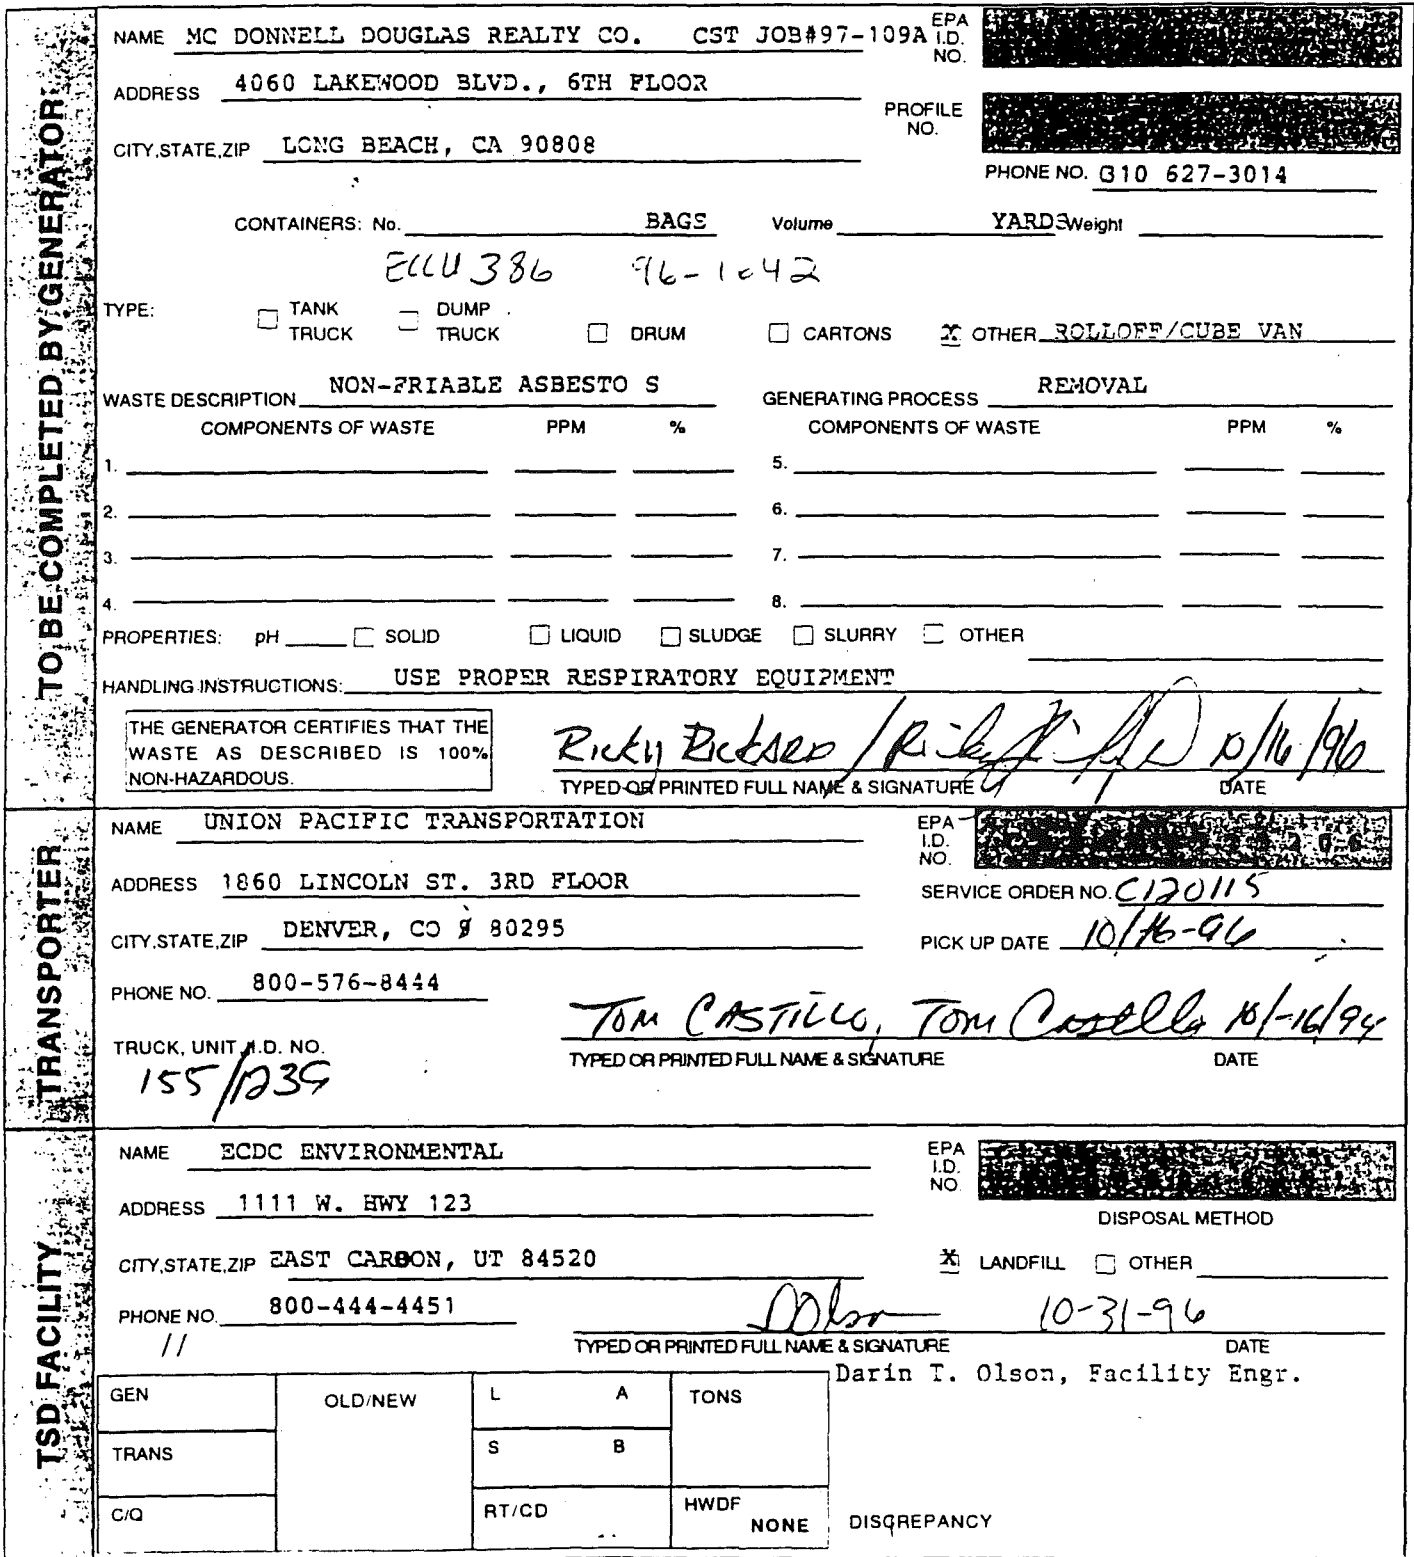 TO BE COMPLETED BY GENERATOR
NAME MC DONNELL DOUGLAS REALTY CO. CST JOB#97-109A EPA I.D. NO.
ADDRESS 4060 LAKEWOOD BLVD., 6TH FLOOR
PROFILE NO.
CITY,STATE,ZIP LONG BEACH, CA 90808
PHONE NO. 310 627-3014
CONTAINERS: No. BAGS Volume YARDS Weight
ECCU 386 96-1042
TYPE: TANK TRUCK DUMP TRUCK DRUM CARTONS X OTHER ROLLOFF/CUBE VAN
WASTE DESCRIPTION NON-FRIABLE ASBESTO S GENERATING PROCESS REMOVAL
COMPONENTS OF WASTE PPM % COMPONENTS OF WASTE PPM %
1. 5.
2. 6.
3. 7.
4. 8.
PROPERTIES: pH SOLID LIQUID SLUDGE SLURRY OTHER
HANDLING INSTRUCTIONS: USE PROPER RESPIRATORY EQUIPMENT
THE GENERATOR CERTIFIES THAT THE
WASTE AS DESCRIBED IS 100%
NON-HAZARDOUS.
Ricky Rickard / 10/16/96
TYPED OR PRINTED FULL NAME & SIGNATURE DATE
TRANSPORTER
NAME UNION PACIFIC TRANSPORTATION EPA I.D. NO.
ADDRESS 1860 LINCOLN ST. 3RD FLOOR
SERVICE ORDER NO. C120115
CITY,STATE,ZIP DENVER, CO 80295
PICK UP DATE 10/16-96
PHONE NO. 800-576-8444
TOM CASTILLO, Tom Castillo 10/-16/96
TRUCK, UNIT I.D. NO.
TYPED OR PRINTED FULL NAME & SIGNATURE DATE
155/
TSD FACILITY
NAME ECDC ENVIRONMENTAL EPA I.D. NO.
ADDRESS 1111 W. HWY 123
DISPOSAL METHOD
CITY,STATE,ZIP EAST CARBON, UT 84520 X LANDFILL OTHER
PHONE NO. 800-444-4451
DOlson 10-31-96
11
TYPED OR PRINTED FULL NAME & SIGNATURE DATE
Darin T. Olson, Facility Engr.
GEN OLD/NEW L A TONS
TRANS S B
C/Q RT/CD HWDF NONE DISCREPANCY